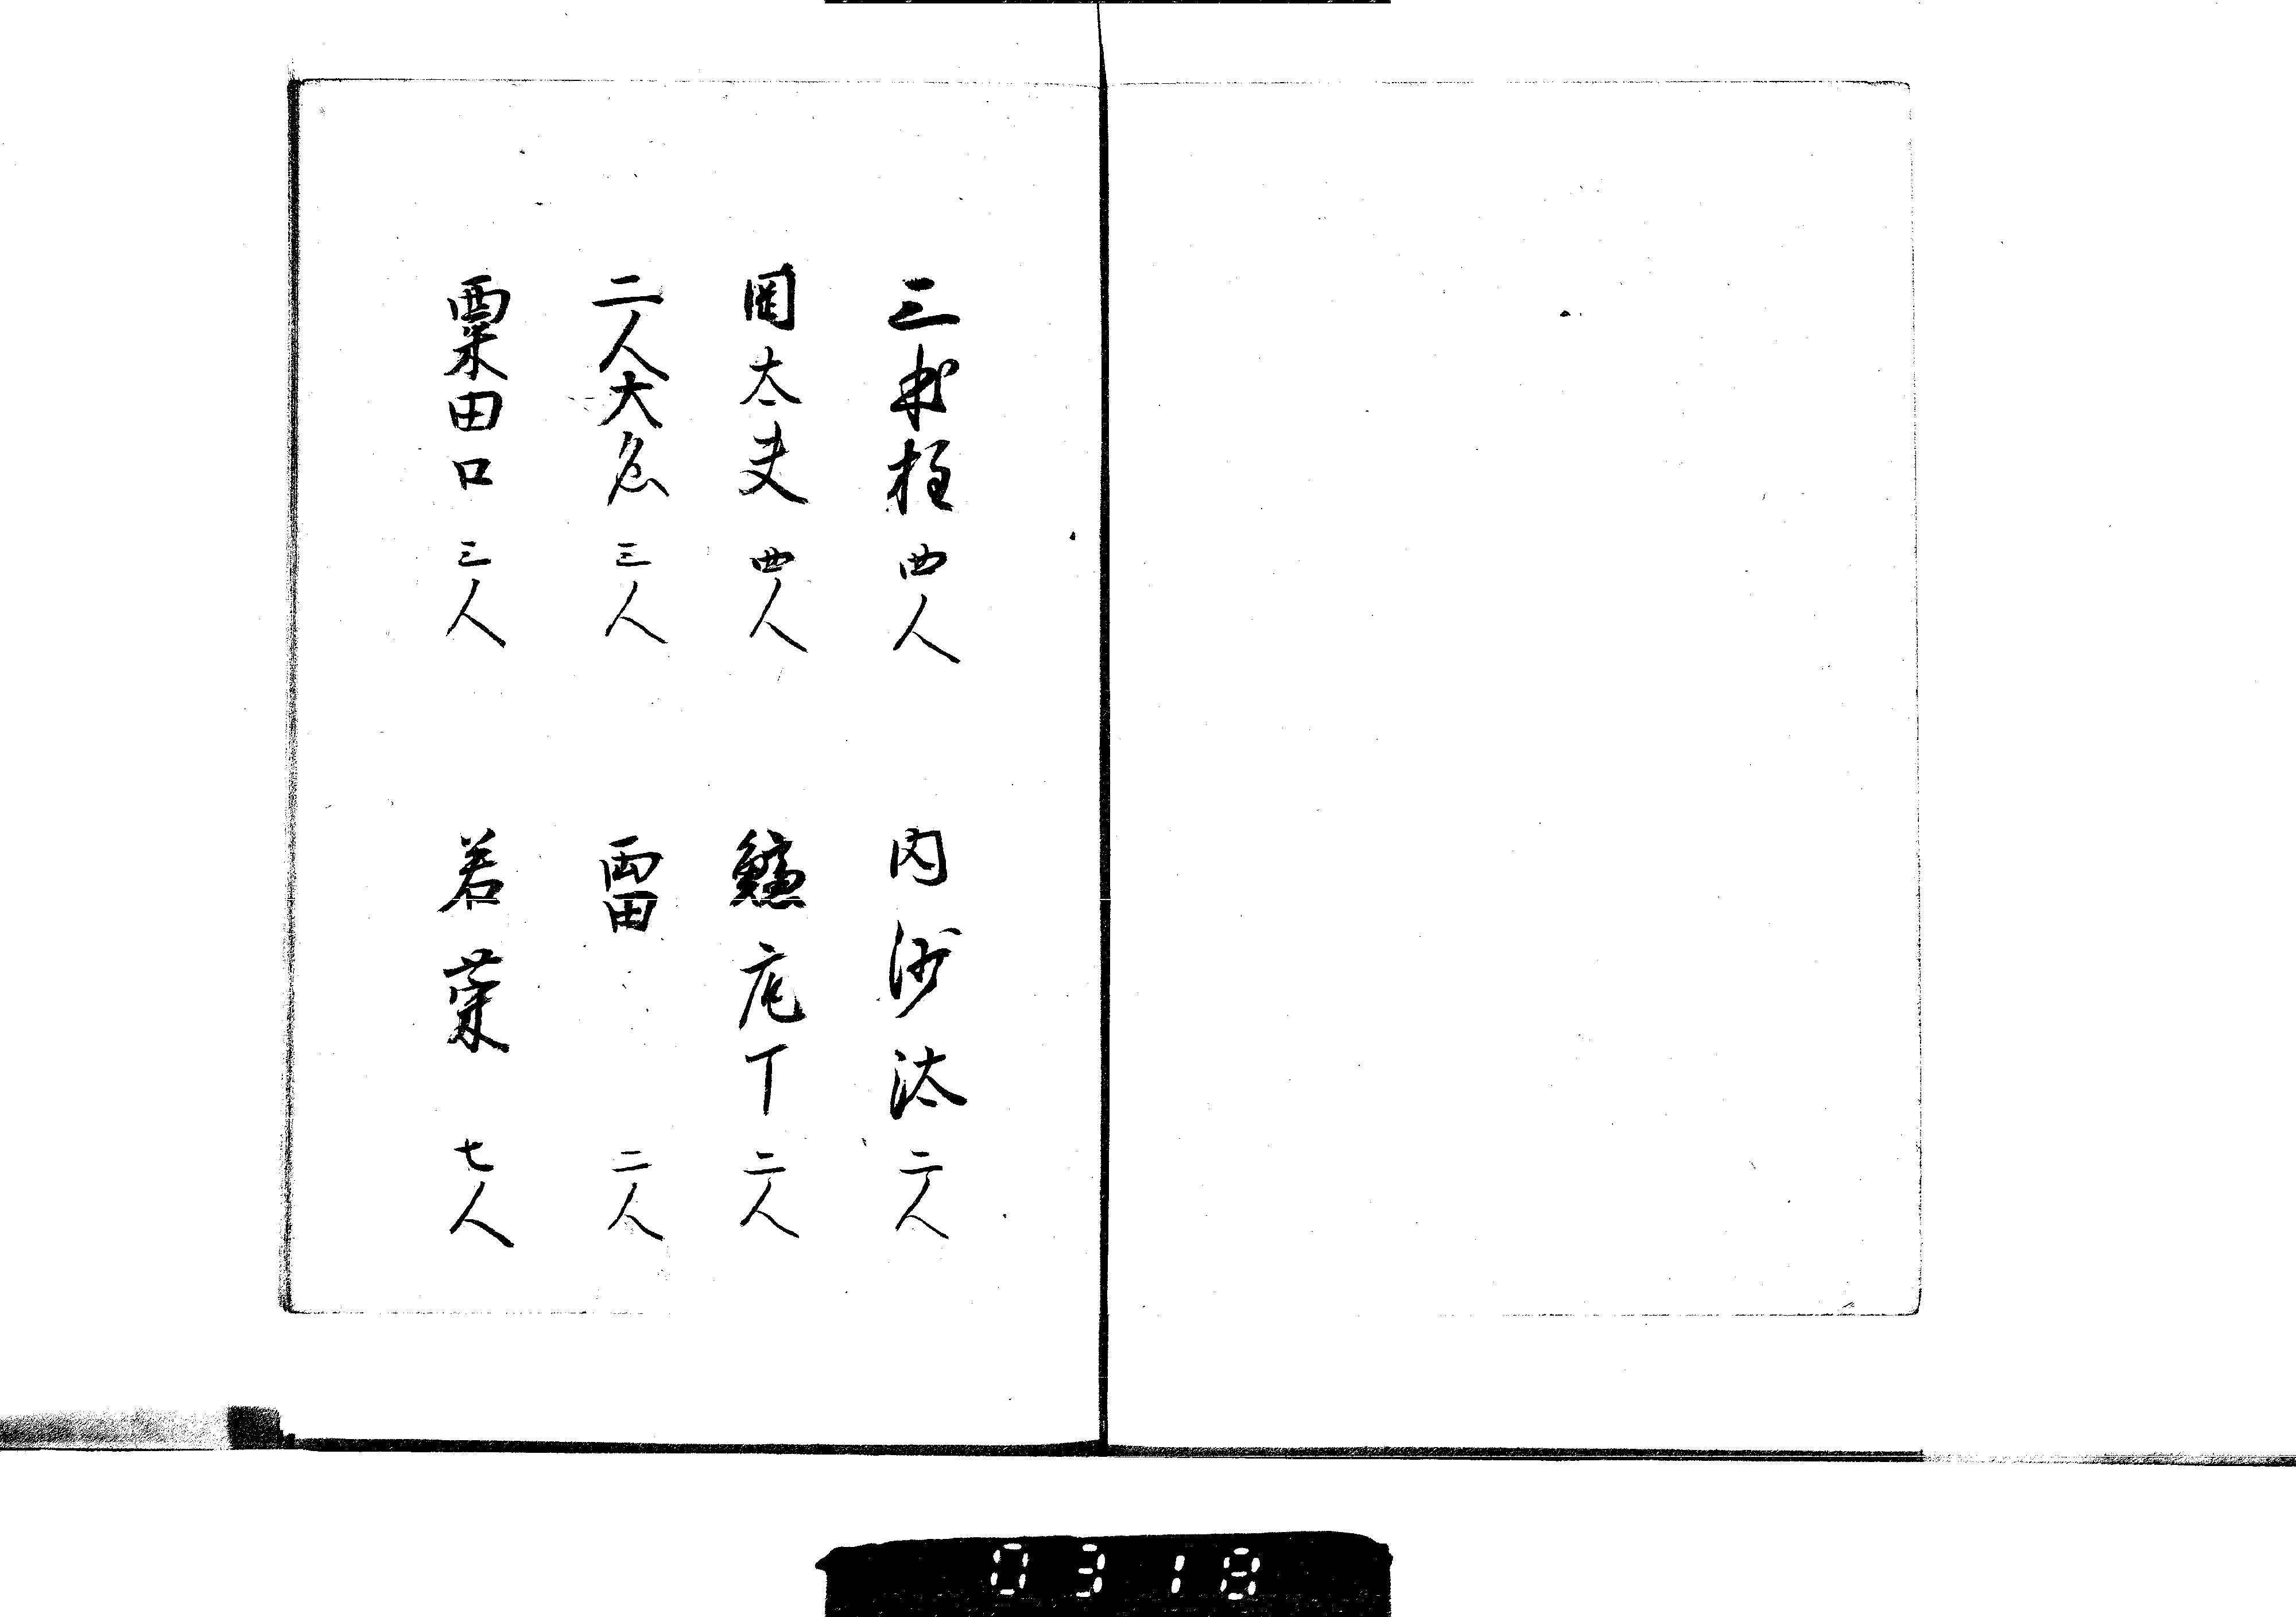 三本柱 四人
岡太夫 四人
二人大名 三人
粟田口 三人
内沙汰 二人
鱸庖丁 二人
雷 二人
若菜 七人
0318